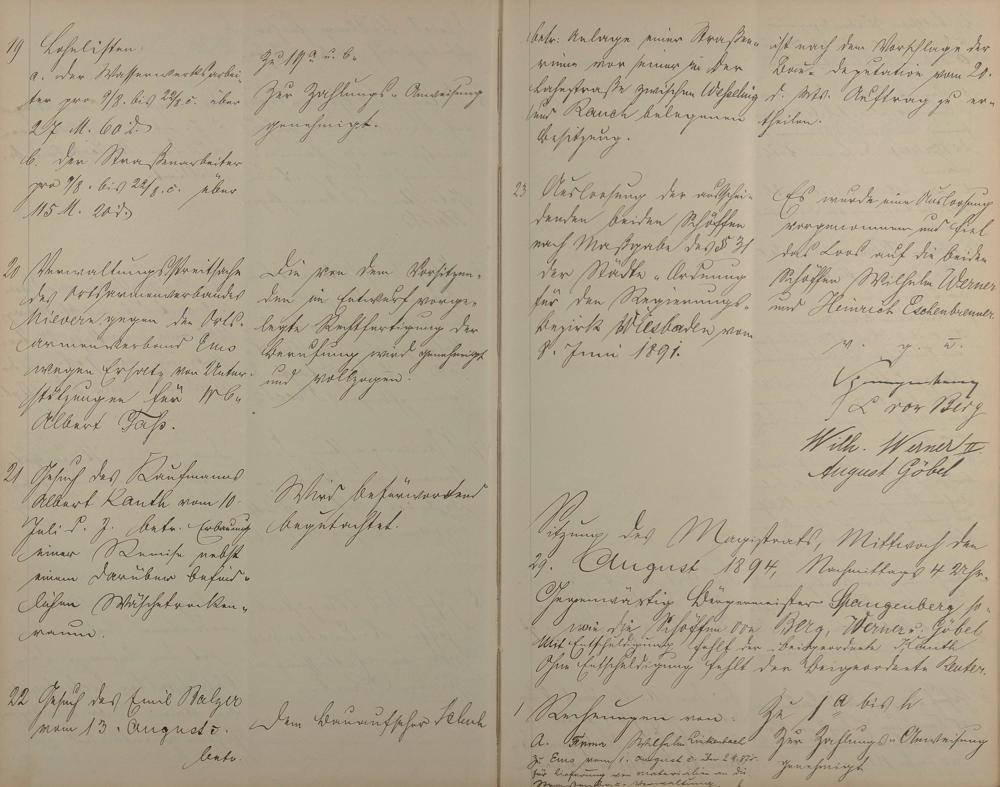 19 Lohnlisten
a. der Wasserwerksarbei-
ter pro 9/8. bis 22/8 c. über
27 M. 60 d.
b. der Straßenarbeiter
pro 9/8. bis 22/8. c. über
115 M. 20 d.
Zu 19 a u. b.
Zur Zahlungs-Anweisung
genehmigt.
20 Verwaltungsstreitsache
des Ortsarmenverbandes
Mievern gegen den Orts-
armenverband Ems
wegen Ersatz von Unter-
stützungen für
Albert Faß.
Die von dem Vorsitzen-
den im Entwurf vorge-
legte Rechtfertigung der
Berufung wird genehmigt
und vollzogen.
21 Gesuch des Kaufmanns
Albert Kauth vom 10.
Juli d. J. betr. Erbauung
einer Remise nebst
einem darüber befind-
lichen Wäschetrocken-
raum.
Wird befürwortend
begutachtet.
22 Gesuch des Emil Balzer
vom 13. August c.
betr.
Dem Bauaufseher
betr. Anlage einer Straßen-
rinne vor seiner in der
zwischen
und Rauch belegenen
Besitzung.
ist nach dem Vorschlage der
Bau-Deputation vom 20.
d. Mts. Auftrag zu er-
theilen.
23 Ausloosung der ausschei-
denden beiden Schöffen
nach Maßgabe des § 31
der Städte-Ordnung
für den Regierungs-
bezirk Wiesbaden vom
8. Juni 1891.
Es wurde eine Ausloosung
vorgenommen und fiel
das Loos auf die beiden
Schöffen Wilhelm Werner
und Heinrich Eschenbrenner.
v. g. u.
Spangenberg
L von Berg
Wilh. Werner II
August Göbel
Sitzung des Magistrats, Mittwoch den
29. August 1894, Nachmittags 4 Uhr.
Gegenwärtig Bürgermeister Spangenberg so-
wie die Schöffen von Berg, Werner u. Göbel
Mit Entschuldigung fehlt der Beigeordnete Kauth
Ohne Entschuldigung fehlt der Beigeordnete Reuter.
1 Rechnungen von:
A. Firma Wilhelm
zu Ems vom 1. August c.
für Lieferung von Materialien an die
Verwaltung.
Zu 1 a bis h
Zur Zahlungs-Anweisung
genehmigt